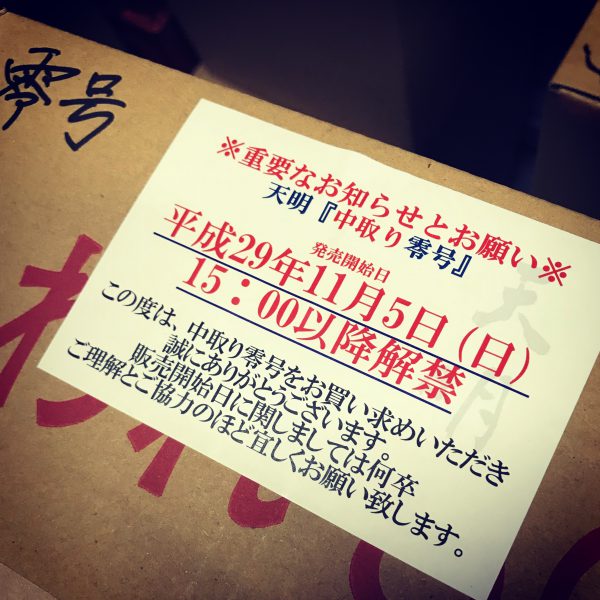 零号
※重要なお知らせとお願い※
天明『中取り零号』
発売開始日
平成29年11月5日(日)
15:00以降解禁
この度は、中取り零号をお買い求めいただき
誠にありがとうございます。
販売開始日に関しましては何卒
ご理解とご協力のほど宜しくお願い致します。
天明
われ